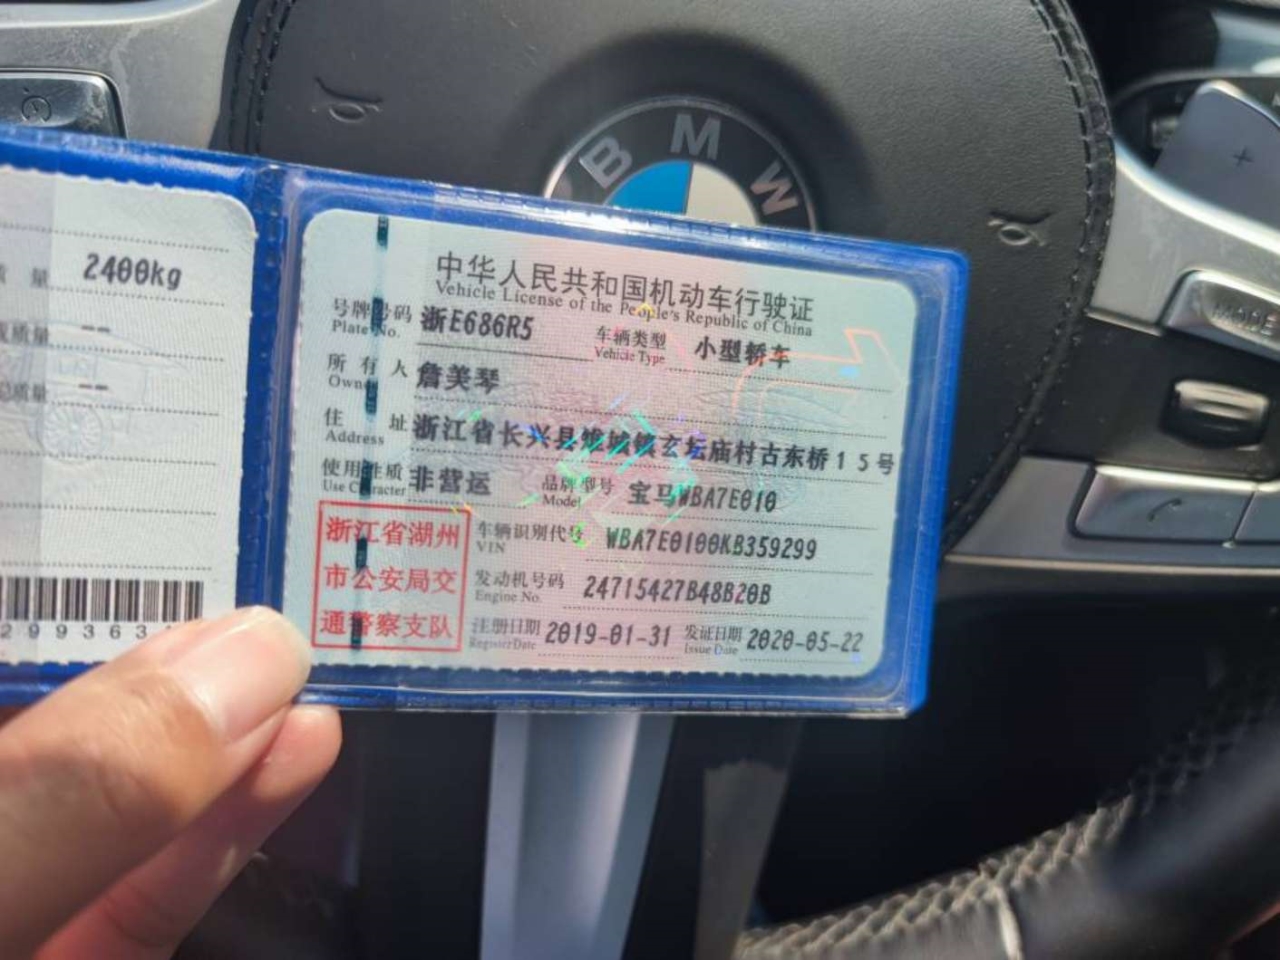 质 量 2400kg
质量 --
质量 --
299363
BMW
MODE
中华人民共和国机动车行驶证
Vehicle License of the People's Republic of China
号牌号码 浙E686R5 车辆类型 小型轿车
Plate No. Vehicle Type
所有人 詹美琴
Owner
住 址 浙江省长兴县雉城镇玄坛庙村古东桥15号
Address
使用性质 非营运 品牌型号 宝马WBA7E010
Use Character Model
浙江省湖州
市公安局交
通警察支队
车辆识别代号 WBA7E0100KB359299
VIN
发动机号码 24715427B48B20B
Engine No.
注册日期 2019-01-31 发证日期 2020-05-22
Register Date Issue Date